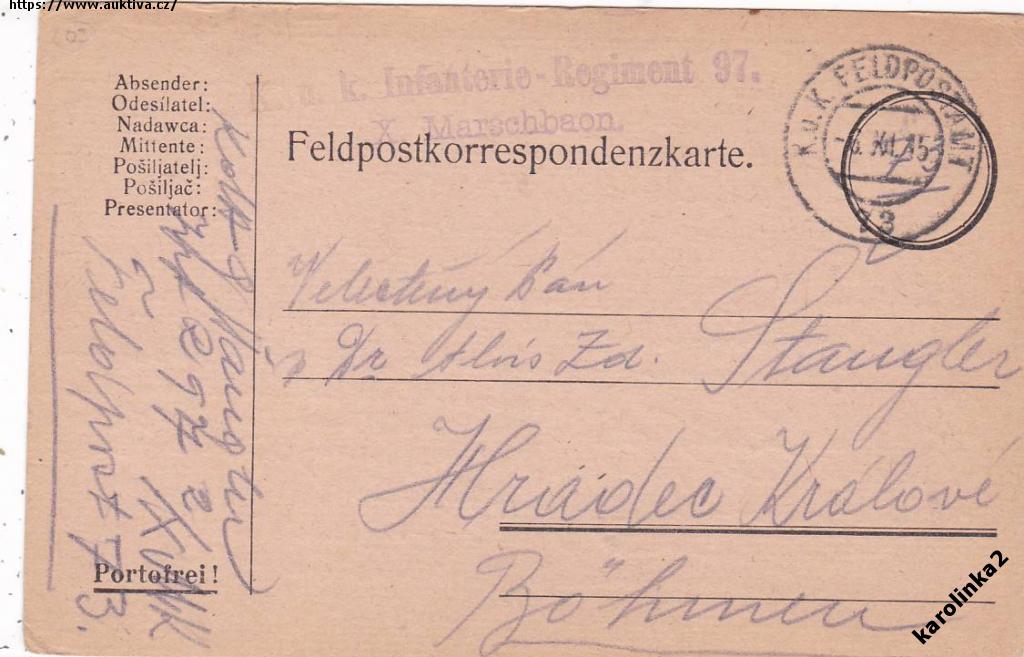 https://www.auktiva.cz/
K. u. k. Infanterie-Regiment 97.
X. Marschbaon.
K.u.K. FELDPOSTAMT
XII. 15
73
Absender:
Odesílatel:
Nadawca:
Mittente:
Pošiljatelj:
Pošiljač:
Presentator:
Feldpostkorrespondenzkarte.
Velectěný Pán
Dr Alois Zd. Stangler
Hradec Králové
Böhmen
97
Feldpost 73.
Portofrei!
karolinka2